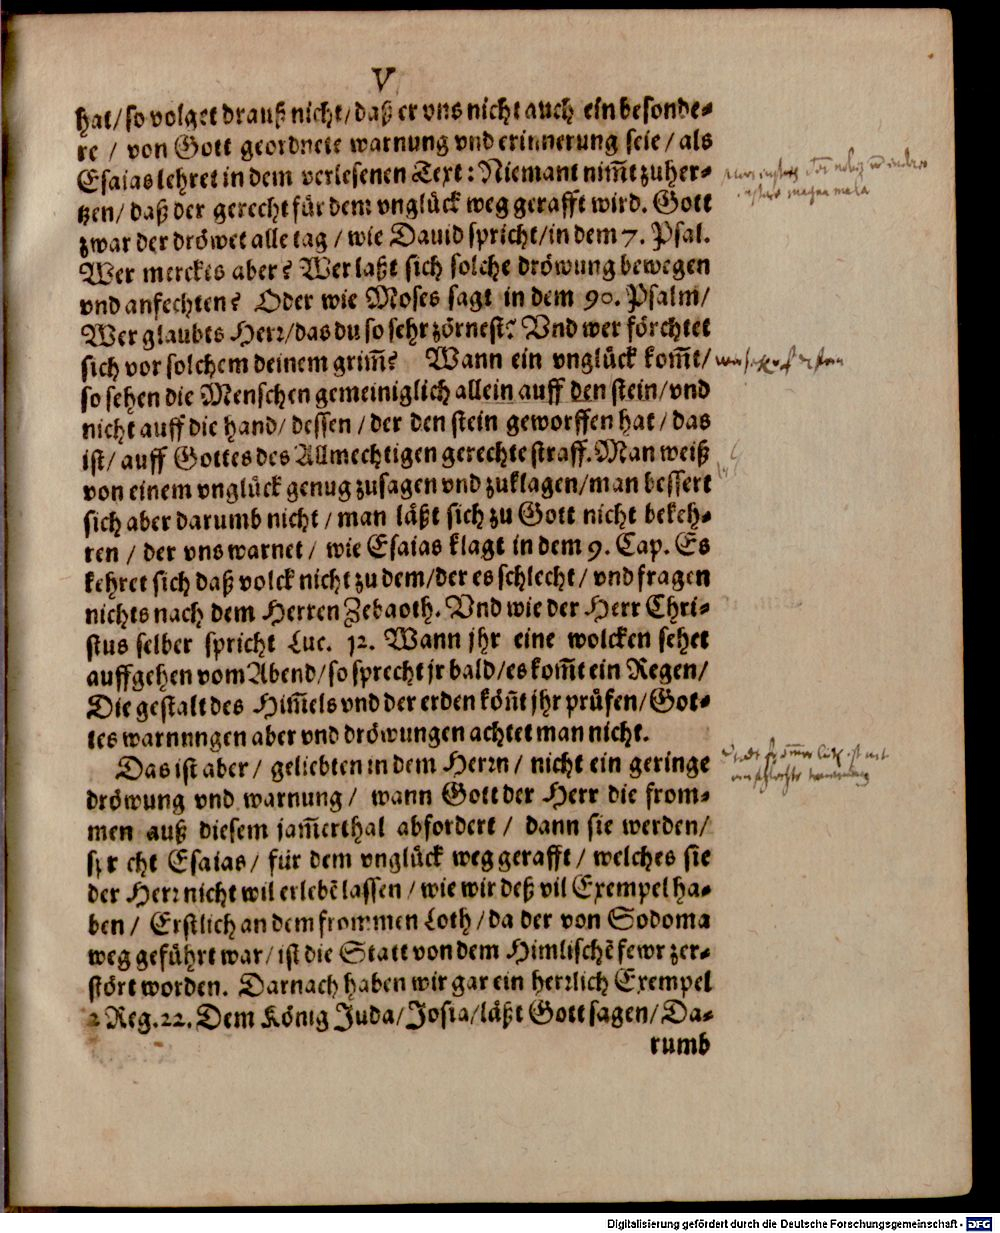 V
hat/ so volget drauß nicht/ daß er vns nicht auch ein besonde⸗
re / von Gott geordnete warnung vnd erinnerung seie/ als
Esaias lehret in dem verlesenen Text: Niemant nim̃t zu her⸗
tzen/ daß der gerecht für dem vnglück weg gerafft wird. Gott
zwar der dröwet alle tag / wie Dauid spricht/ in dem 7. Psal.
Wer merckts aber? Wer laßt sich solche dröwung bewegen
vnd anfechten? Oder wie Moses sagt in dem 90. Psalm/
Wer glaubts Herr/ das du so sehr zörnest? Vnd wer förchtet
sich vor solchem deinem grim̃? Wann ein vnglück kom̃t/
so sehen die Menschen gemeiniglich allein auff den stein/ vnd
nicht auff die hand/ dessen / der den stein geworffen hat / das
ist/ auff Gottes des Allmechtigen gerechte straff. Man weiß
von einem vnglück genug zusagen vnd zuklagen/ man bessert
sich aber darumb nicht / man läßt sich zu Gott nicht bekeh⸗
ren / der vns warnet / wie Esaias klagt in dem 9. Cap. Es
kehret sich daß volck nicht zu dem/ der es schlecht / vnd fragen
nichts nach dem Herren Zebaoth. Vnd wie der Herr Chri⸗
stus selber spricht Luc. 12. Wann jhr eine wolcken sehet
auffgehen vom Abend/ so sprecht jr bald/ es kom̃t ein Regen/
Die gestalt des Him̃els vnd der erden köñt jhr prüfen/ Got⸗
tes warnnngen aber vnd dröwungen achtet man nicht.
Das ist aber / geliebten in dem Herrn / nicht ein geringe
dröwung vnd warnung / wann Gott der Herr die from⸗
men auß diesem jam̃erthal abfordert / dann sie werden/
spricht Esaias / für dem vnglück weg gerafft / welches sie
der Herr nicht wil erlebẽ lassen / wie wir deß vil Exempel ha⸗
ben / Erstlich an dem frommen Loth / da der von Sodoma
weg geführt war/ ist die Statt von dem Himlischẽ fewr zer⸗
stört worden. Darnach haben wir gar ein herrlich Exempel
2 Reg. 22. Dem König Juda/ Josia/ läßt Gott sagen/ Da⸗
rumb
Digitalisierung gefördert durch die Deutsche Forschungsgemeinschaft - DFG